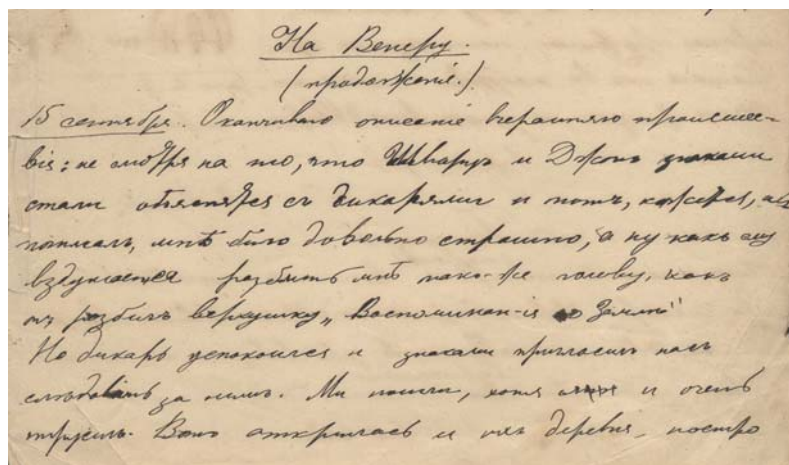 На Венеру.
(продолженіе.)
15 сентября. Оканчиваю описаніе вчерашняго происшес-
вія: не смотря на то, что Шварцъ и Джонъ знаками
стали объясняться съ дикарями и тотъ, кажется, ихъ
понималъ, мнѣ было довольно страшно, а ну какъ ему
вздумается разбить мнѣ также голову, какъ
онъ разбилъ верхушку „Воспоминан-ія о Землѣ"
Но дикарь успокоился и знаками пригласилъ насъ
слѣдовать за нимъ. Мы пошли, хотя и очень
трусили. Вотъ открылась и ихъ деревня, постро